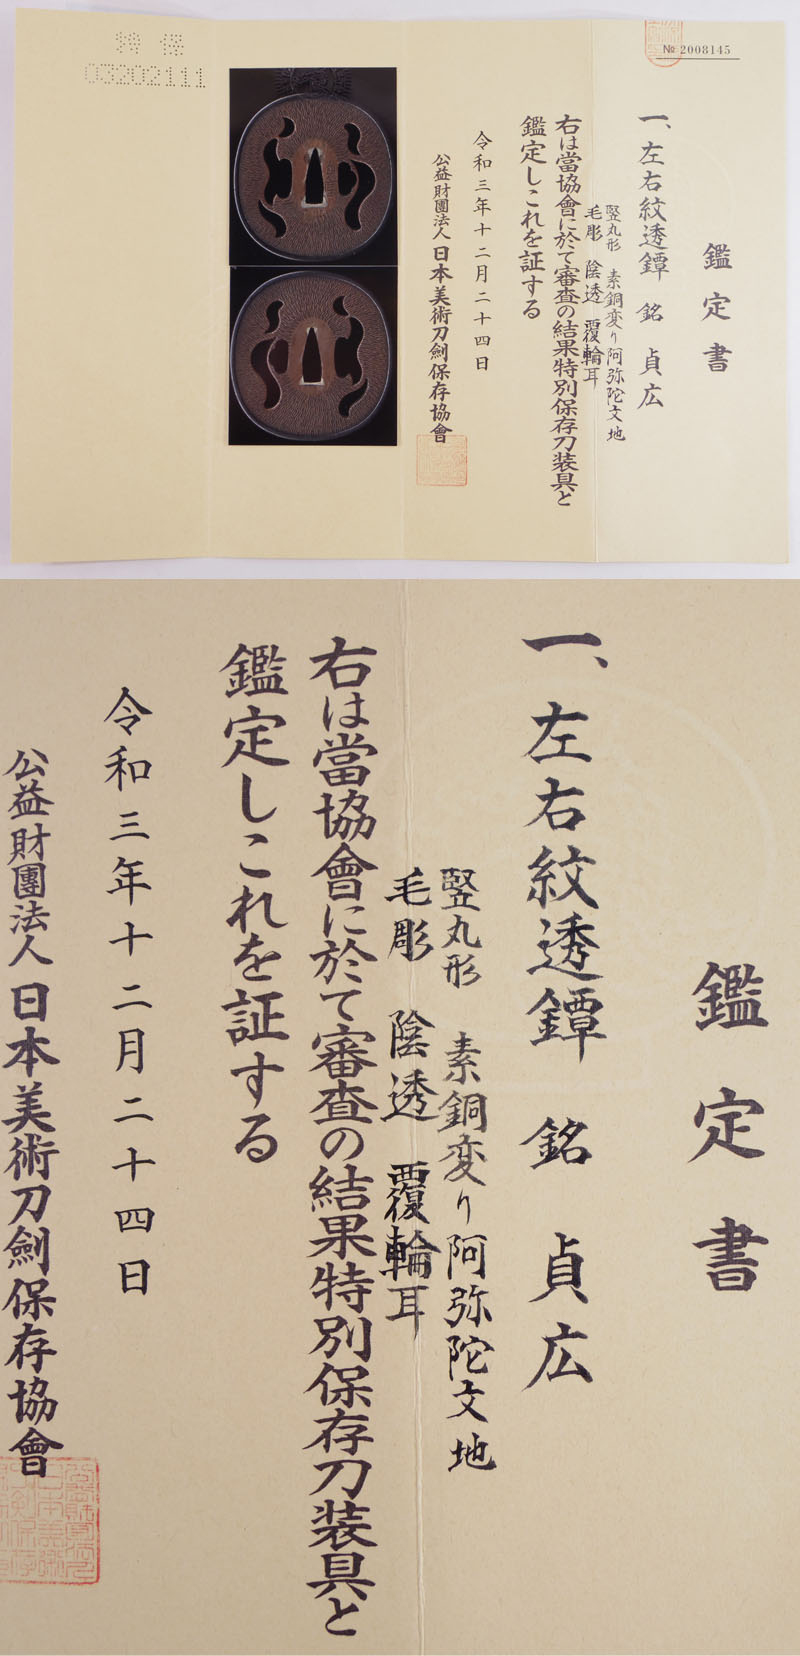 特保
03202111
№ 2008145
鑑定書
一、左右紋透鐔 銘 貞広
竪丸形 素銅変り阿弥陀文地
毛彫 陰透 覆輪耳
右は當協會に於て審査の結果特別保存刀装具と
鑑定しこれを証する
令和三年十二月二十四日
公益財團法人 日本美術刀劍保存協會
鑑定書
一、左右紋透鐔 銘 貞広
竪丸形 素銅変り阿弥陀文地
毛彫 陰透 覆輪耳
右は當協會に於て審査の結果特別保存刀装具と
鑑定しこれを証する
令和三年十二月二十四日
公益財團法人 日本美術刀劍保存協會